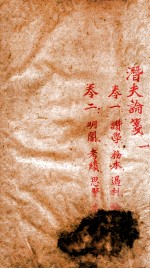 潛夫論箋 一
卷一 讚學 務本 遏利
卷二 明闇 考績 思賢